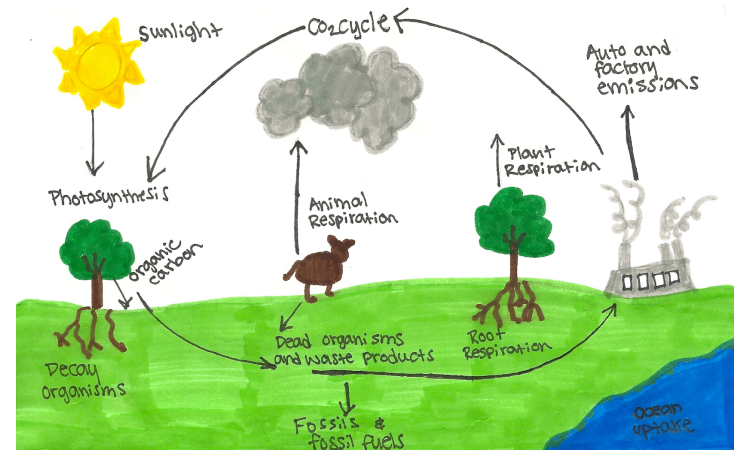 Sunlight
CO₂cycle
Auto and
factory
emissions
Photosynthesis
Animal
Respiration
Plant
Respiration
organic
carbon
Decay
organisms
Dead organisms
and waste products
Root
Respiration
Fossils &
fossil fuels
Ocean
uptake